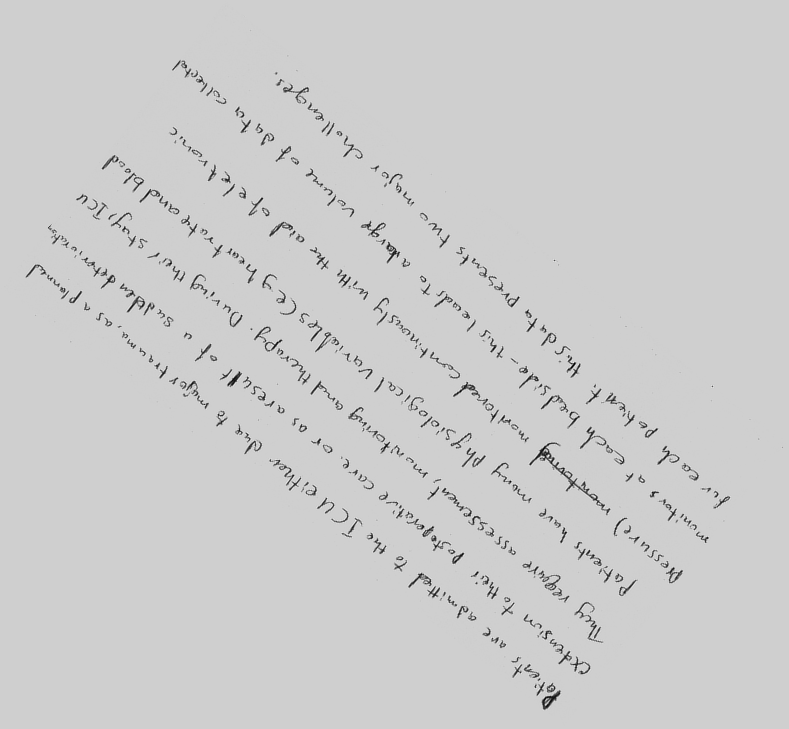 Patients are admitted to the ICU either due to major trauma, as a planned
extension to their postoperative care, or as a result of a sudden deterioration
They require assessement, monitoring and therapy. During their stay, ICU
Patients have many physiological variables (e.g heart rate and blood
pressure) monitored continuously with the aid of eletronic
monitors at each bedside - this leads to a large volume of data collected
for each patient. this data presents two major challenges.